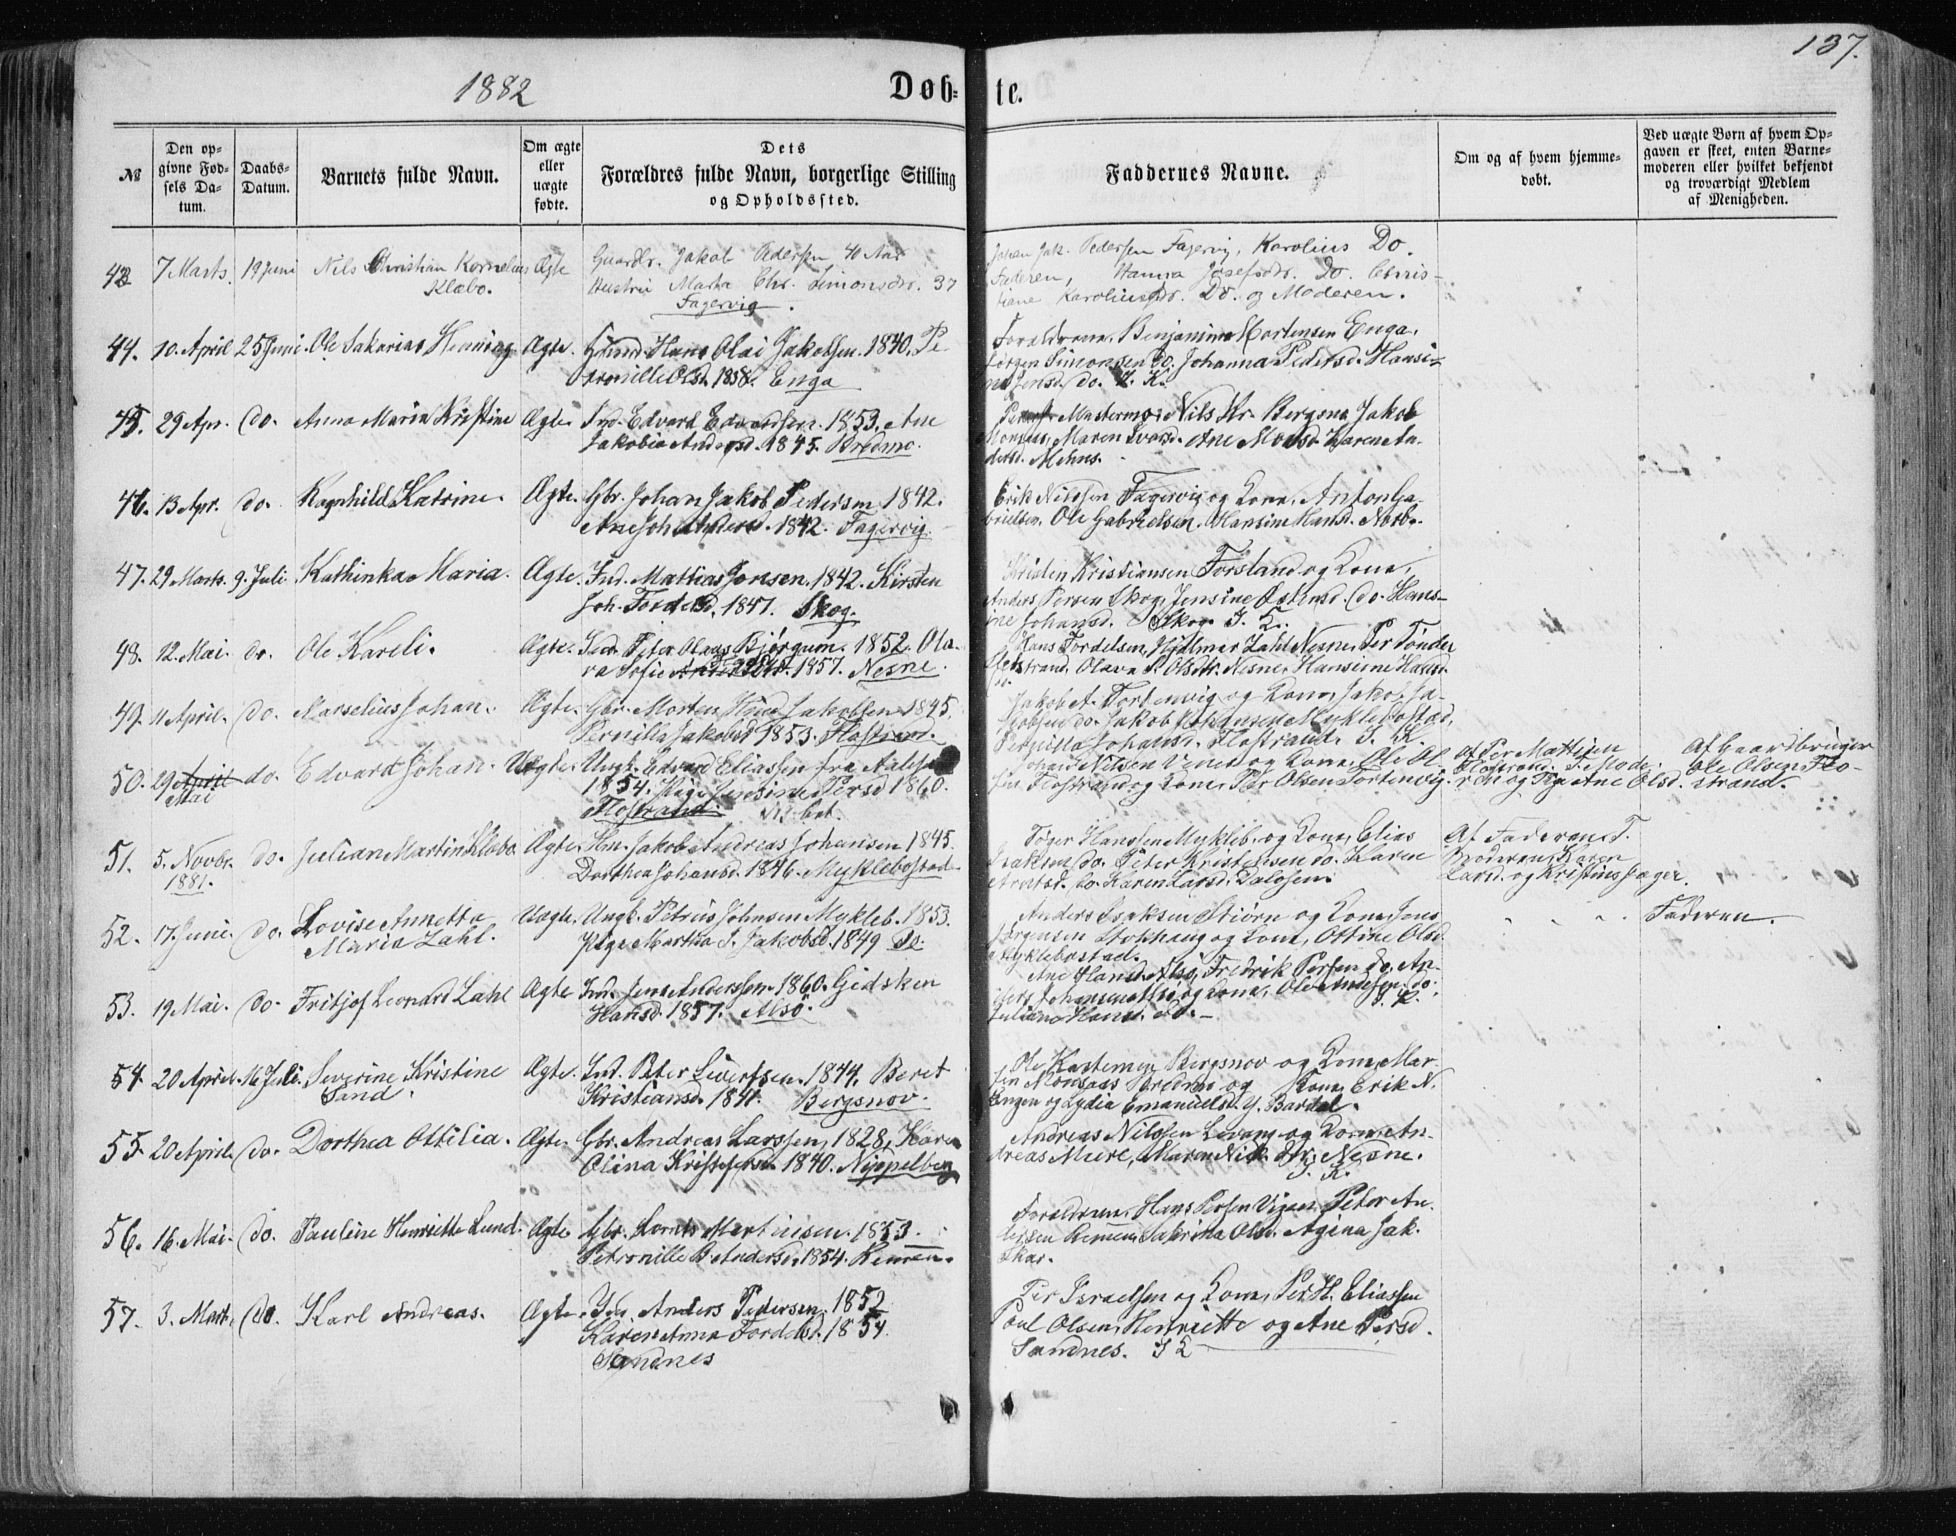 1882
Døb-
te.
137.
№
Den op-
givne Fød-
sels Da-
tum.
Daabs-
Datum.
Barnets fulde Navn.
Om ægte
eller
uægte
fødte.
Dets
Forældres fulde Navn, borgerlige Stilling
og Opholdssted.
Faddernes Navne.
Om og af hvem hjemme-
døbt.
Ved uægte Børn af hvem Op-
gaven er skeet, enten Barne-
moderen eller hvilket bekjendt
og troværdigt Medlem
af Menigheden.
7 Marts 19 Juni Nils Christian Kornelius Ægte Gaardbr. Jakob Pedersen 40 Aar
Klæbo. Hustru Marta Chr. Simonsdr. 37
Fagervig.
Johan Jak. Pedersen Fagervig, Karolius Do.
Faderen, Hanna Josefsdr. Do. Chris-
tiane Karoliusdr. Do. og Moderen.
44. 10. April 25 Juni Ole Sakarias Henning Ægte. Hans Olai Jakobsen 1840. Pe
tronille Olsd. 1858. Enga
Forældrene, Benjamine Mortensen Enga,
Jørgen Simonsen do. Johanna Pedersd. Hansi-
ne Jensd. do. I. K.
45. 29 Apr. do. Anna Maria Kristine Ægte. Ind. Edvard Edvardsen. 1853. Ane
Jakobia Andersd. 1845. Bredmo.
Nils Kr. Bergsno Jakob
Monsen, Maren Ivarsd. Ane Monsd. Karen An-
dersd.
46. 13 Apr. do. Ragnhild Katrine. Ægte. Gbr. Johan Jakob Pedersen 1842.
Ane Joh. Andersd. 1842. Fagervig.
Erik Nilssen Fagervig og Kone, Anton Ga-
brielsen, Ole Gabrielsen, Hansine Hansd.
47. 29 Marts 9. Juli Kathinka Maria. Ægte. Ind. Mattias Jonsen. 1842. Kirsten
Joh. Fordelsd. 1847. Skog.
Kristen Kristiansen Forsland og Kone,
Anders Persen Skog, Jensine Østensd. do. Hans-
ine Johansd. Skog. I. K.
48. 12. Mai. do. Ole Kareli. Ægte. Ind. Peter Olaus Bjørgum. 1852. Ola-
va Sofie 1857. Nesne.
Hans Fordelsen, Hjalmar Zahl Nesne, Per Tønder
Olava P. Olsdr. Nesne, Hansine Hansd.
do.
49. 11 April. do. Marselius Johan. Ægte. Gbr. Morten Hind Jakobsen 1845.
Pernilla Jakobsd. 1853. Flostrand.
Jakob A. Fortenvig og Kone, Jakob Ja-
kobsen do. Jakob Johansen Myklebostad,
Pernilla Johansd. Flostrand. I. K.
50. 29 April do. Edvard Johan. Uægte. Ungk. Edvard Eliassen fra
Mai 1854. Pige Jensine Persd. 1860.
Flostrand.
Johan Nilsen og Kone, Ole Ol-
sen Flostrand og Kone, Per Olsen Fortenvig.
Af Per Mattisen
Flostrand. F. Mode-
ren og Pige Ane Olsd.
Af Gaardbruger
Ole Olsen Flo-
strand.
51. 5. Novbr. do. Julian Martin Klæbo Ægte. Jakob Andreas Johansen 1845.
1881. Dorthea Johansd. 1846. Myklebostad
Tøger Hanssen Mykleb. og Kone, Elias
Isaksen do. Peter Kristensen do. Karen
Arntsd. do. Karen Larsd. Dalosen.
Af Faderen F.
Moderen, Karen
Larsd. og Kristine Tøger.
52. 17. Juni. do. Lovise Annetta Uægte. Ungk. Petrus Johnsen Mykleb. 1853.
Maria Zahl. Pige Martha J. Jakobsd. 1849 Do.
Anders Isaksen Stiørn og Kone, Jens
Jørgensen Stokhaug og Kone, Ottine Olsd.
Myklebostad.
Faderen.
53. 19 Mai. do. Fritjof Leonard Zahl Ægte Ind. Jens Anderssen 1860. Gidsken
Hansd. 1857. Alsö.
Ane Hansd. Alsö, Fredrik Persen do. An-
ders Johansen Alsö og Kone, Ole Andersen do.
Juliane Hansd. do. I. K.
54. 20 April. 16 Juli. Severine Kristine Ægte. Ind. Peter Sivertsen. 1844. Beret
Sand. Kristiansd. 1841. Bergsnov.
Bergsnov og Kone, Mar-
tin Monsaas Bredmo og Kone, Erik N.
Engen og Lydia Emanuelsd. Y. Bardal.
55. 20 April. do. Dorthea Ottilia. Ægte. Gbr. Andreas Larssen, 1828, Karen
Olina Kristofersd. 1840. Nyøpelberg
Andreas Nilssen Levang og Kone, An-
dreas Meire, Maren Nesne.
I. K.
56. 16. Mai. do. Pauline Henriette Lund. Ægte Gbr. Lornts Martinsen. 1853.
Petronille B. Andersd. 1854. Remen.
Forældrene, Hans Persen Vigen, Peter An-
dersen Remen, Sakrina Olsd. Agina Jak.
Skar.
57. 3. Mart. do. Karl Andreas. Ægte. Ind. Anders Pedersen. 1852
Karen Anna Fordelsd. 1854.
Sandnes
Per Israelsen og Kone, Per H. Eliassen
Paul Olsen, Henriette og Ane Persd.
Sandnes. I K